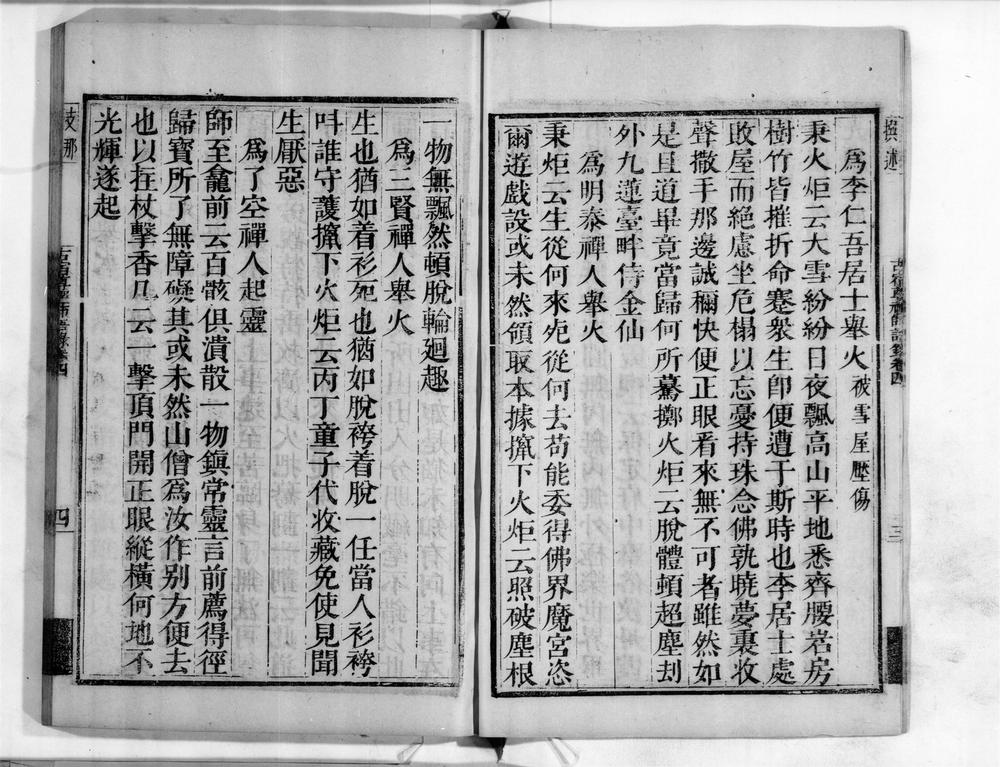 為李仁吾居士舉火 被雪屋壓傷
秉火炬云大雪紛紛日夜飄高山平地悉齊腰岩房
樹竹皆摧折命蹇衆生卽便遭于斯時也李居士處
敗屋而絶慮坐危榻以忘憂持珠念佛孰曉夢裏收
聲撒手那邊誠穪快便正眼看來無不可者雖然如
是且道畢竟當歸何所驀擲火炬云脫體頓超塵刦
外九蓮臺畔侍金仙
為明泰禪人舉火
秉炬云生從何來死從何去苟能委得佛界魔宮恣
爾遊戲設或未然領取本據攛下火炬云照破塵根
三
一物無飄然頓脫輪廻趣
為三賢禪人舉火
生也猶如着衫死也猶如脫袴着脫一任當人衫袴
呌誰守護攛下火炬云丙丁童子代收藏免使見聞
生厭惡
為了空禪人起靈
師至龕前云百骸俱潰散一物鎮常靈言前薦得徑
歸寶所了無障礙其或未然山僧為汝作别方便去
也以拄杖擊香几云一擊頂門開正眼縱橫何地不
光輝遂起
四